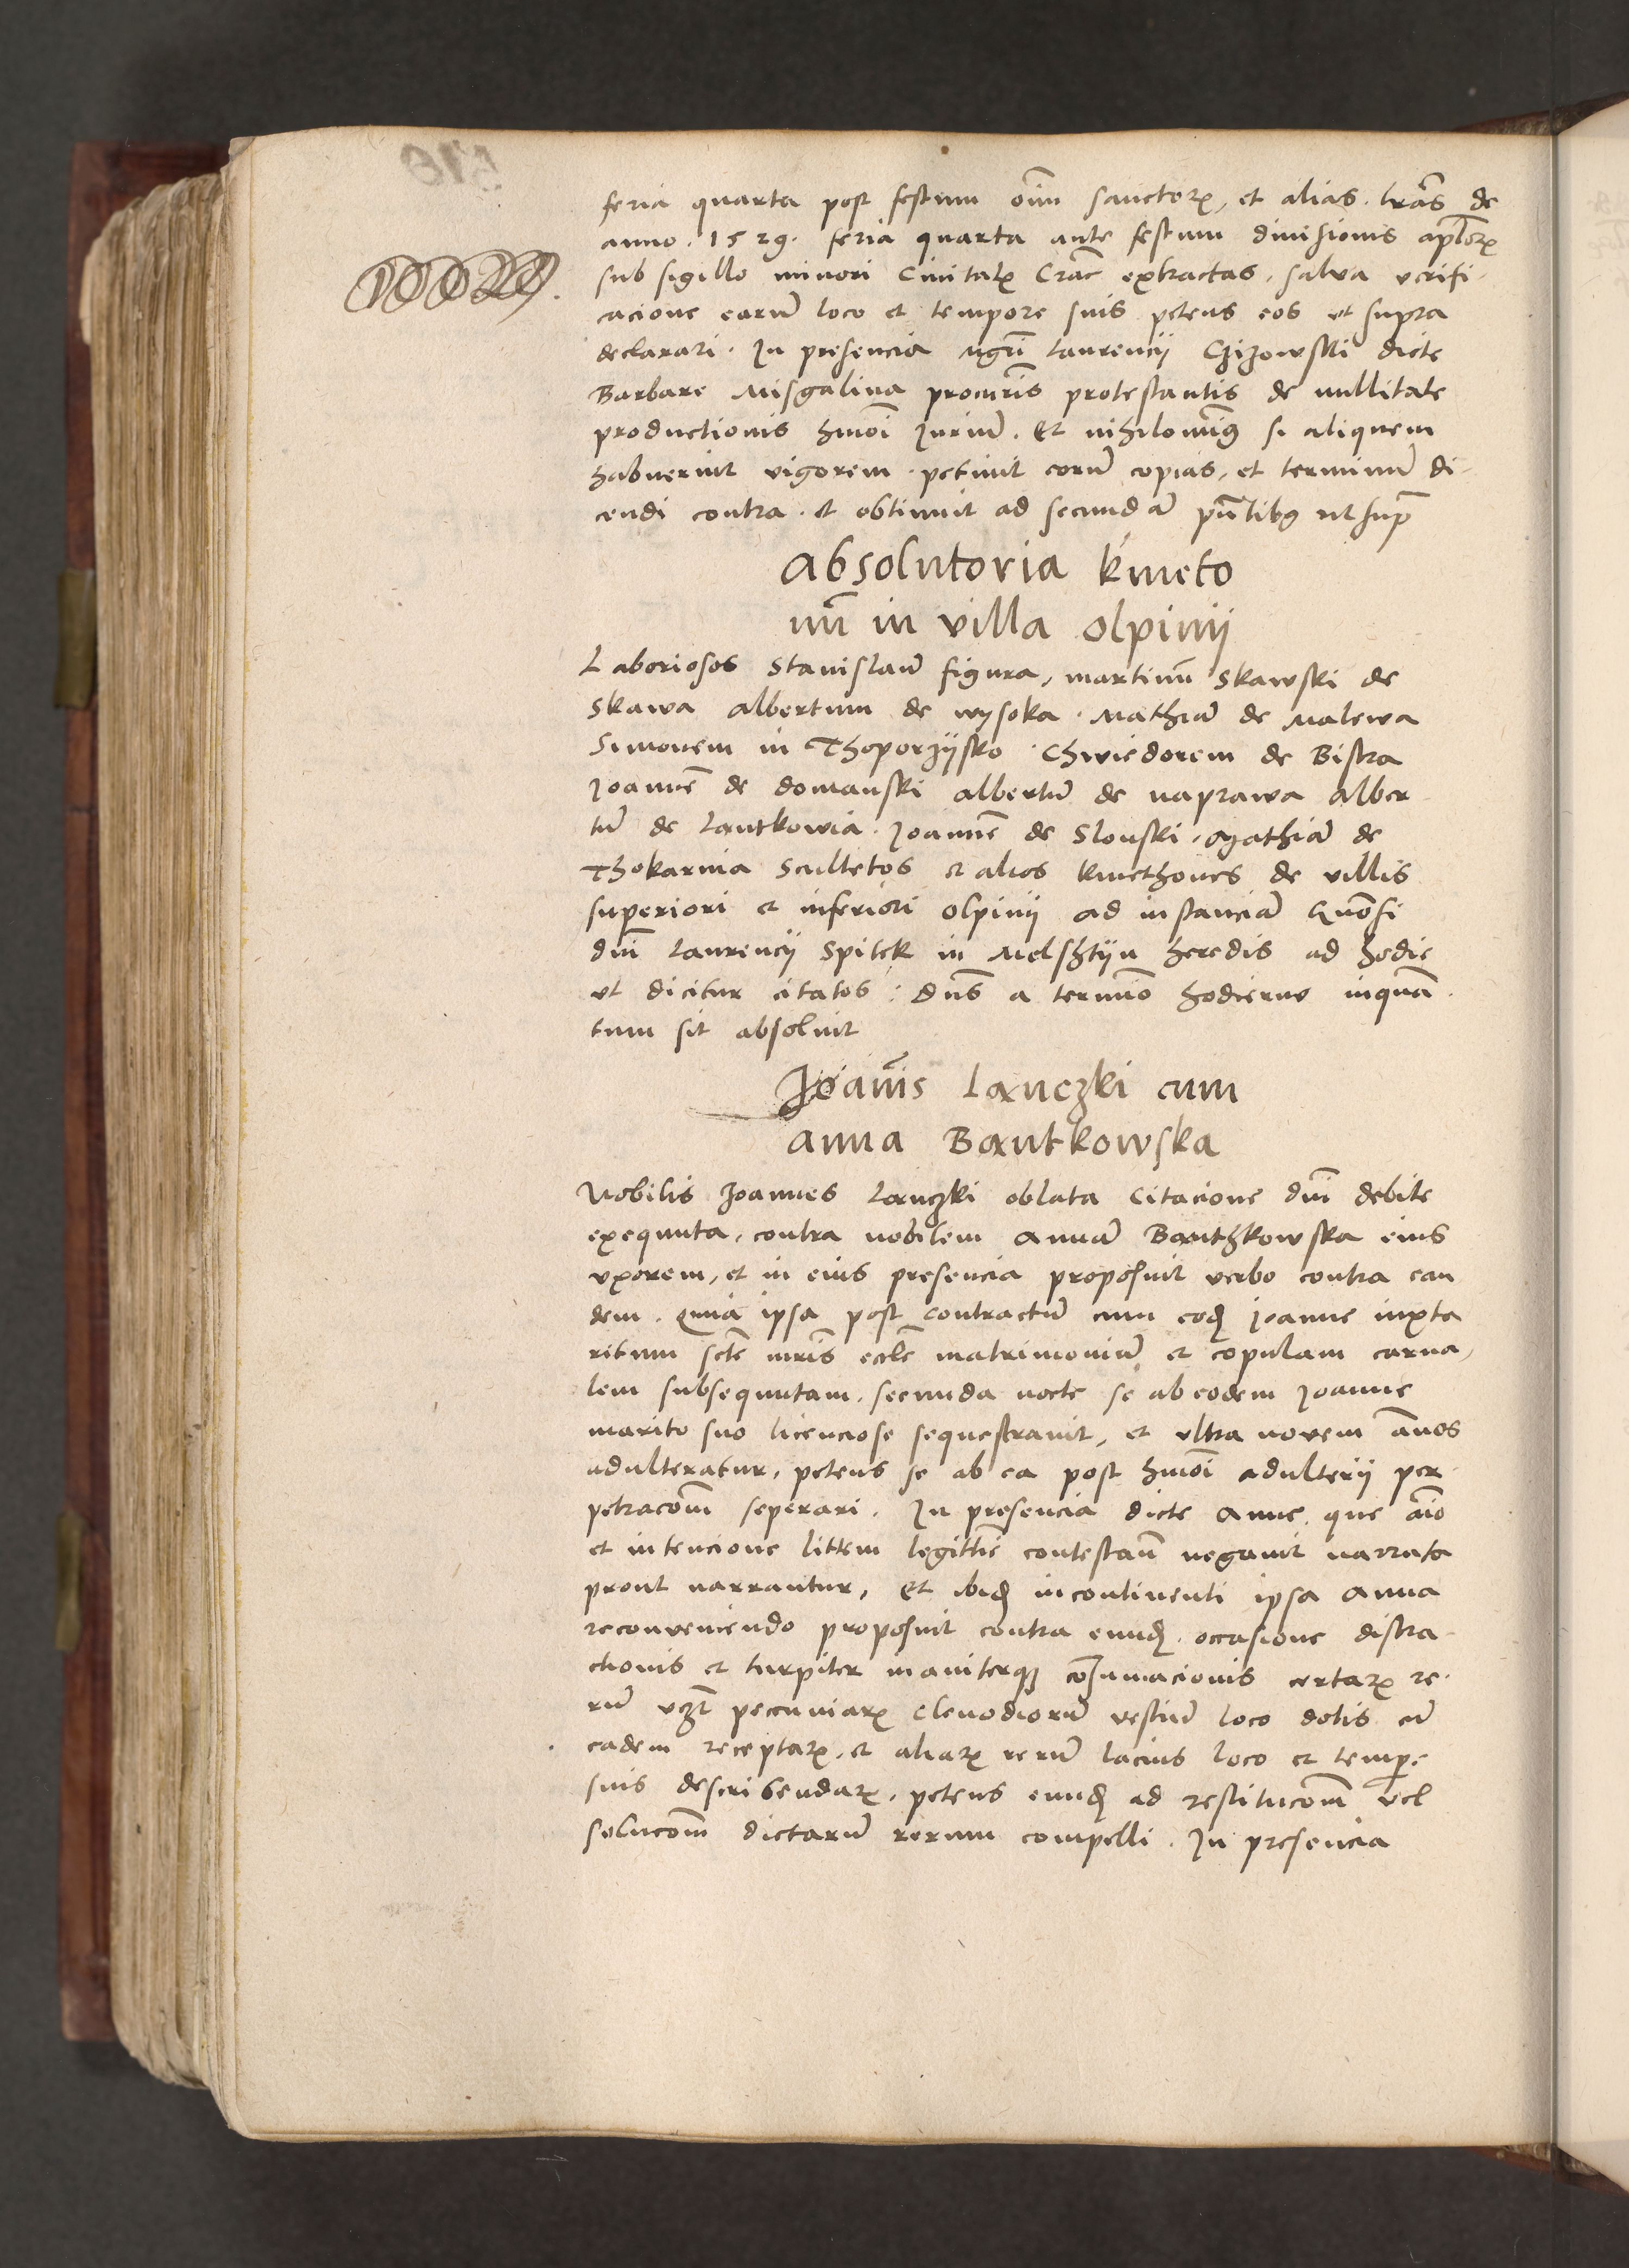 feria quarta post festum oīm sanctorꝝ, et alias. lr̄as de
anno. 1529. feria quarta ante festum diuisionis apl̄orꝝ
sub sigillo minori Ciuitatꝭ Crac̄ extractas, salua verifi-
cacione earū loco et tempore suis petens eos vt supra
declarari. In presencia mgr̄i Laurencij Czizowski dicte
Barbare Misgalina procur̄is protestantis de nullitate
productionis hm̄oi Juriū. Et nihilominꝰ si aliquem
habuerint vigorem. petiuit eorū copias, et terminū di-
cendi contra. et obtinuit ad secundā pn̄tibꝰ vt supͣ
Absolutoria kmeto
nū in villa olpinij
Laboriosos Stanislaū figura, martinū Skawski de
Skawa Albertum de wysoka. Mathiā de Malewa
Simonem in Thoporzijsko. Chwiedorem de Bistra
Joannē de domanski albertū de naprawa Alber
tū de Lantkowia. Joannē de Slonski. Mathiā de
Thokarnia Scultetos et alios kmethones de villis
superiori et inferiori olpinij ad instanciā
dnī Laurencij Spitek in Melshtijn heredis ad hodie
vt dicitur citatos: Dn̄s a termīo hodierno inquā
tum sit absoluit
Joān̄is Lanczki cum
anna Bantkowska
Nobilis Joannes Lanczki oblata Citacione dnī debite
exequuta, contra nobilem Annā Banthkowska eius
vxorem, et in eius presencia proposuit verbo contra ean
dem. Quia ipsa post contractū cum eodꝫ Joanne iuxta
ritum scte mr̄is eccl̄e matrimoniū et copulam carna,
lem subsequutam. secunda nocte se ab eodem Joanne
marito suo licenciose sequestrauit, et vltra novem ānos
adulteratur, petens se ab ea post hm̄oi adulterij per
petracōm seperari. In presencia dicte Anne. que aīo
et intencione littem legittiē contestan̄ negauit narrata
prout narrantur, Et ibidꝫ incontinenti ipsa Anna
reconveniendo proposuit contra eundꝫ. occasione distra-
ctionis et turpiter inaniterqꝫ consumacionis certarꝝ re-
rū vꝫt pecuniarꝝ Clenodiorū vestiū loco dotis cū
eadem receptarꝝ, et aliarꝝ rerū lacius loco et tempe
suis describendarꝝ. petens eundꝫ ad restitucōm vel
solucōm dictarū rerum compelli. In presencia